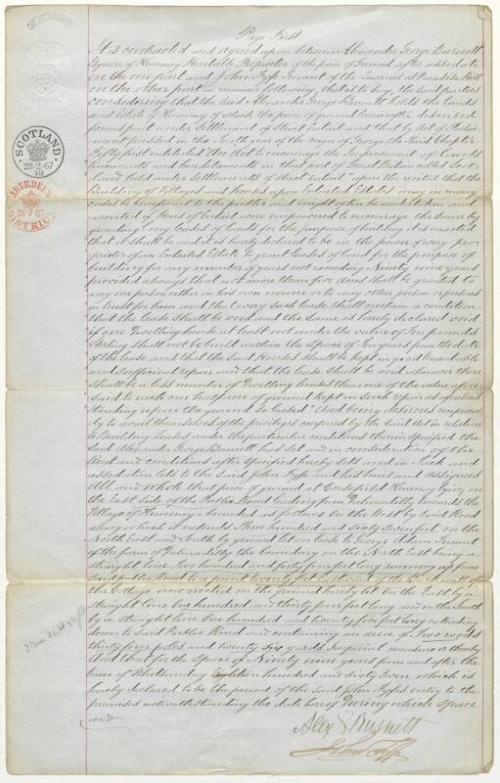 Page First
It is contracted and agreed upon between Alexander George Burnett
Esquire of Kemnay Heritable Proprietor of the piece of Ground after
on the one part and John Fyfe Tenant of the Quarries at Paradise Hill
on the other part in manner following, that is to say, the said parties
considering that the said Alexander George Burnett holds the lands
and Estate of Kemnay of which the piece of ground
forms part under Settlement of Strict entail and that by Act of Parlia
ment passed in the Tenth year of the reign of George the Third Chapter
Fifty first entitled "An Act to encourage the Improvement of Lands
Tenements and hereditaments in that part of Great Britain called Scot
land held under settlements of strict entail" upon the recital that the
Building of Villages and houses upon Entailed Estates may in many
cases be beneficial to the public and might often be undertaken and
executed if Heirs of Entail were empowered to encourage the same by
granting long leases of lands for the purpose of building it is enacted
that it shall be and it is hereby declared to be in the power of every pro
prietor of an Entailed Estate to grant leases of land for the purpose of
building for any number of years not exceeding Ninety nine years
provided always that not more than five Acres shall be granted to
any one person either in his own name or to any other person or persons
in trust for him and that every such lease shall contain a condition
that the lease shall be void and the same is hereby declared void
if one Dwelling house at least not under the value of Ten pounds
Sterling shall not be built within the space of Ten years from the date
of the lease and that the said Houses shall be kept in good tenantable
and sufficient repair and that the lease shall be void whenever there
shall be a less number of Dwelling houses than one of the value afore
said to each one two of ground kept in such repair as aforesaid
standing upon the ground so leased" And being desirous reciprocal
ly to avail themselves of the privileges conferred by the said Act in relation
to Building leases under the particular conditions therein specified the
said Alexander George Burnett has Set and in consideration of the
Rent and conditions after specified hereby Sets and in Tack and
assedation lets to the said John Fyfe and his heirs and assignees
All and Whole that piece of ground at Kemnay lying on
the East Side of the Public Road leading from to the
Village of Kemnay bounded as follows On the West by said Road
along which it extends Three hundred and Sixty Seven feet on the
North East and South by ground let on lease to George Adam Tenant
of the farm of the boundary on the North East being a
straight line Two hundred and forty four feet long running up from
said public Road to a point twenty feet of the
the Cottage now erected on the ground hereby let On the East by a
straight line One hundred and thirty four feet long and on the South
by a straight line One hundred and twenty five feet long extending
down to said Public Road and containing an area of Two roods
thirty five poles and twenty six yards Imperial measure or thereby
And that for the space of Ninety nine years from and after the
term of Whitsunday Eighteen hundred and sixty seven which is
hereby declared to be the period of the said John Fyfe's entry to the
premises notwithstanding the date hereof During which space
and
Alex G Burnett
John Fyfe
SCOTLAND
22.2.67
ABERDEEN
DISTRICT